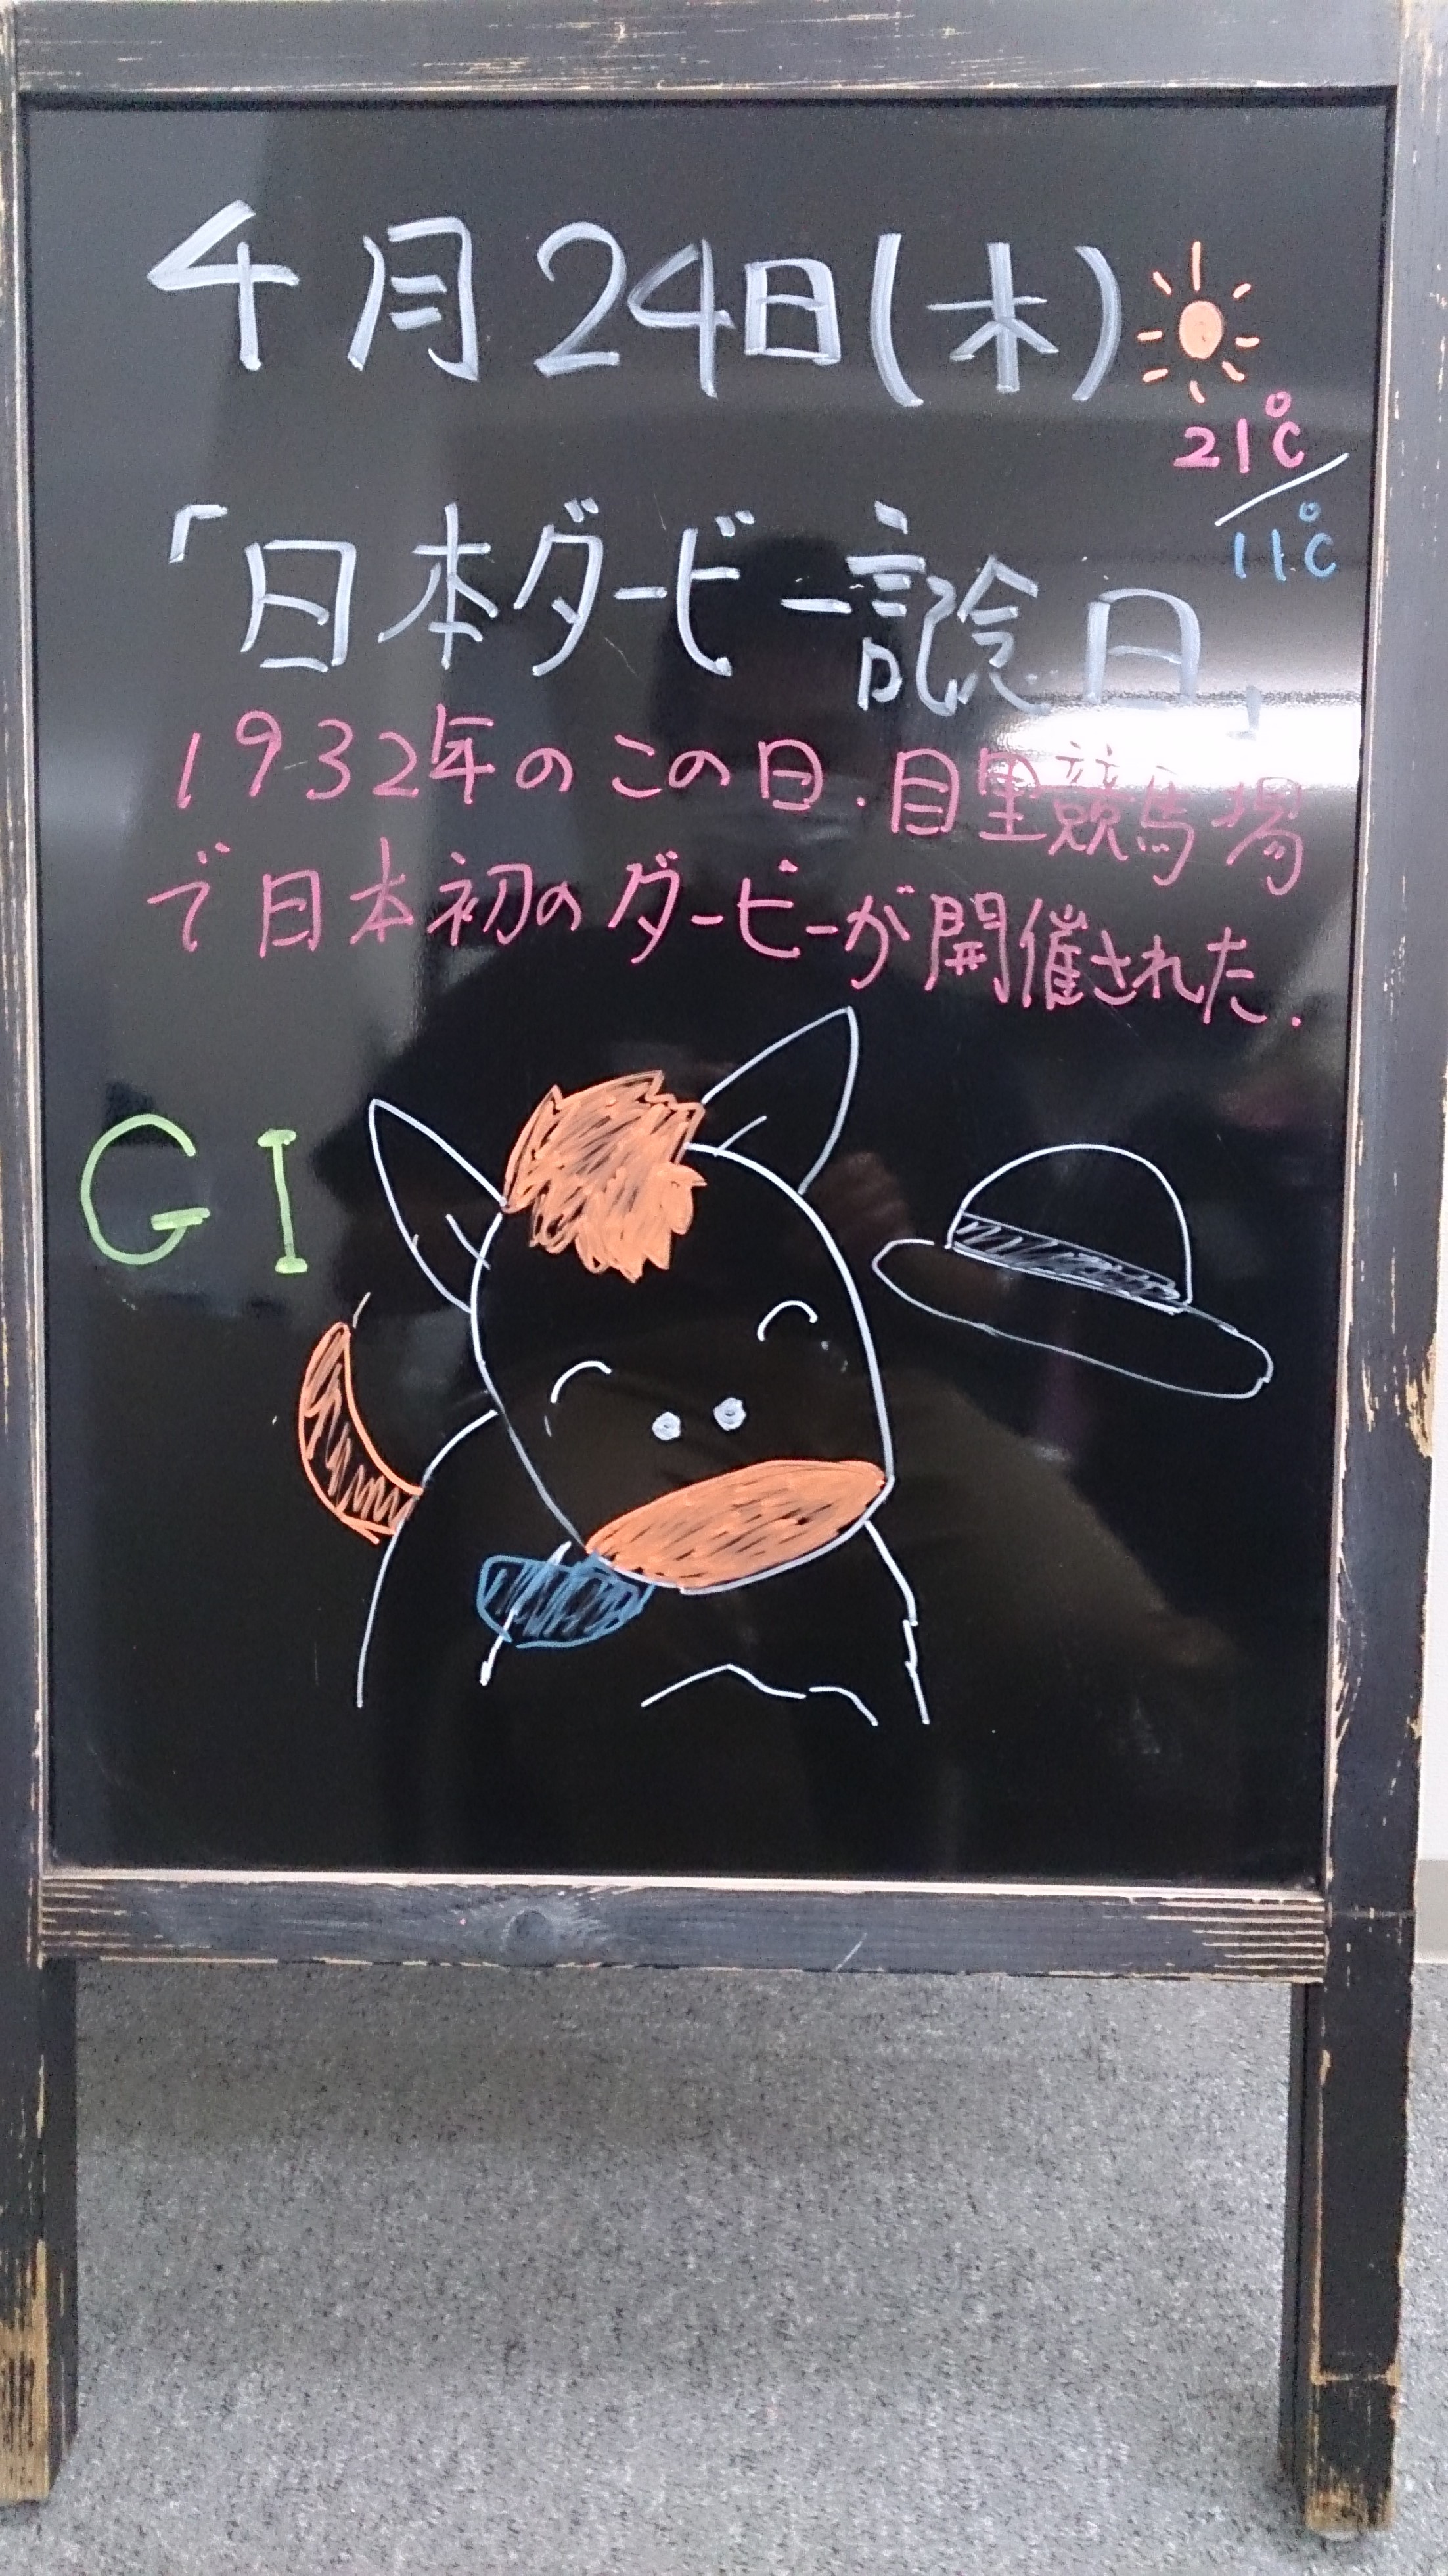 4月24日(木)
21℃
11℃
「日本ダービー記念日」
1932年のこの日.目黒競馬場
で日本初のダービーが開催された.
GI